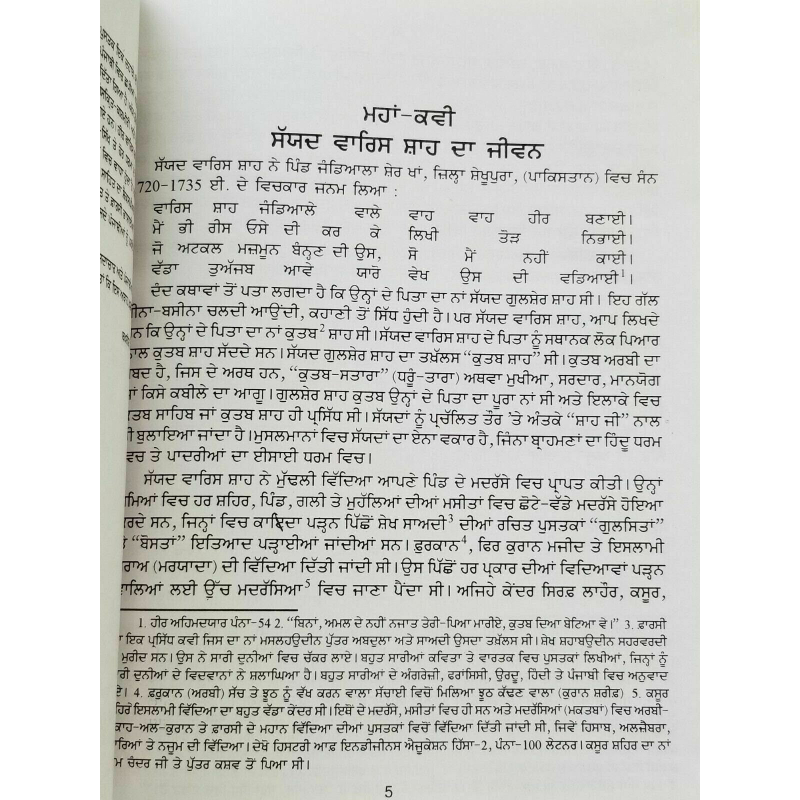 ਮਹਾਂ-ਕਵੀ
ਸੱਯਦ ਵਾਰਿਸ ਸ਼ਾਹ ਦਾ ਜੀਵਨ
ਸੱਯਦ ਵਾਰਿਸ ਸ਼ਾਹ ਨੇ ਪਿੰਡ ਜੰਡਿਆਲਾ ਸ਼ੇਰ ਖਾਂ, ਜ਼ਿਲ੍ਹਾ ਸ਼ੇਖੂਪੁਰਾ, (ਪਾਕਿਸਤਾਨ) ਵਿਚ ਸੰਨ
720-1735 ਈ. ਦੇ ਵਿਚਕਾਰ ਜਨਮ ਲਿਆ :
ਵਾਰਿਸ ਸ਼ਾਹ ਜੰਡਿਆਲੇ ਵਾਲੇ ਵਾਹ ਵਾਹ ਹੀਰ ਬਣਾਈ।
ਮੈਂ ਭੀ ਰੀਸ ਓਸੇ ਦੀ ਕਰ ਕੇ ਲਿਖੀ ਤੋੜ ਨਿਭਾਈ।
ਜੋ ਅਟਕਲ ਮਜ਼ਮੂਨ ਬੰਨ੍ਹਣ ਦੀ ਉਸ, ਸੋ ਮੈਂ ਨਹੀਂ ਕਾਈ।
ਵੱਡਾ ਤੁਅੱਜਬ ਆਵੇ ਯਾਰੋ ਵੇਖ ਉਸ ਦੀ ਵਡਿਆਈ¹।
ਦੰਦ ਕਥਾਵਾਂ ਤੋਂ ਪਤਾ ਲਗਦਾ ਹੈ ਕਿ ਉਨ੍ਹਾਂ ਦੇ ਪਿਤਾ ਦਾ ਨਾਂ ਸੱਯਦ ਗੁਲਸ਼ੇਰ ਸ਼ਾਹ ਸੀ। ਇਹ ਗੱਲ
ੀਨਾ-ਬਸੀਨਾ ਚਲਦੀ ਆਉਂਦੀ, ਕਹਾਣੀ ਤੋਂ ਸਿੱਧ ਹੁੰਦੀ ਹੈ। ਪਰ ਸੱਯਦ ਵਾਰਿਸ ਸ਼ਾਹ, ਆਪ ਲਿਖਦੇ
ਨ ਕਿ ਉਨ੍ਹਾਂ ਦੇ ਪਿਤਾ ਦਾ ਨਾਂ ਕੁਤਬ² ਸ਼ਾਹ ਸੀ। ਸੱਯਦ ਵਾਰਿਸ ਸ਼ਾਹ ਦੇ ਪਿਤਾ ਨੂੰ ਸਥਾਨਕ ਲੋਕ ਪਿਆਰ
ਾਲ ਕੁਤਬ ਸ਼ਾਹ ਸੱਦਦੇ ਸਨ। ਸੱਯਦ ਗੁਲਸ਼ੇਰ ਸ਼ਾਹ ਦਾ ਤਖ਼ੱਲਸ "ਕੁਤਬ ਸ਼ਾਹ" ਸੀ। ਕੁਤਬ ਅਰਬੀ ਦਾ
ਬਦ ਹੈ, ਜਿਸ ਦੇ ਅਰਥ ਹਨ, "ਕੁਤਬ-ਸਤਾਰਾ" (ਧਰੂੰ-ਤਾਰਾ) ਅਥਵਾ ਮੁਖੀਆ, ਸਰਦਾਰ, ਮਾਨਯੋਗ
ਾਂ ਕਿਸੇ ਕਬੀਲੇ ਦਾ ਆਗੂ। ਗੁਲਸ਼ੇਰ ਸ਼ਾਹ ਕੁਤਬ ਉਨ੍ਹਾਂ ਦੇ ਪਿਤਾ ਦਾ ਪੂਰਾ ਨਾਂ ਸੀ ਅਤੇ ਇਲਾਕੇ ਵਿਚ
ਤਬ ਸਾਹਿਬ ਜਾਂ ਕੁਤਬ ਸ਼ਾਹ ਹੀ ਪ੍ਰਸਿੱਧ ਸੀ। ਸੱਯਦਾਂ ਨੂੰ ਪ੍ਰਚੱਲਿਤ ਤੌਰ 'ਤੇ ਅੰਤਕੇ "ਸ਼ਾਹ ਜੀ" ਨਾਲ
ੀ ਬੁਲਾਇਆ ਜਾਂਦਾ ਹੈ। ਮੁਸਲਮਾਨਾਂ ਵਿਚ ਸੱਯਦਾਂ ਦਾ ਏਨਾ ਵਕਾਰ ਹੈ, ਜਿੰਨਾ ਬ੍ਰਾਹਮਣਾਂ ਦਾ ਹਿੰਦੂ ਧਰਮ
ਵਿਚ ਤੇ ਪਾਦਰੀਆਂ ਦਾ ਈਸਾਈ ਧਰਮ ਵਿਚ।
ਸੱਯਦ ਵਾਰਿਸ ਸ਼ਾਹ ਨੇ ਮੁੱਢਲੀ ਵਿੱਦਿਆ ਆਪਣੇ ਪਿੰਡ ਦੇ ਮਦਰੱਸੇ ਵਿਚ ਪ੍ਰਾਪਤ ਕੀਤੀ। ਉਨ੍ਹਾਂ
ਮਿਆਂ ਵਿਚ ਹਰ ਸ਼ਹਿਰ, ਪਿੰਡ, ਗਲੀ ਤੇ ਮੁਹੱਲਿਆਂ ਦੀਆਂ ਮਸੀਤਾਂ ਵਿਚ ਛੋਟੇ-ਵੱਡੇ ਮਦਰੱਸੇ ਹੋਇਆ
ਰਦੇ ਸਨ, ਜਿਨ੍ਹਾਂ ਵਿਚ ਕਾਇਦਾ ਪੜ੍ਹਨ ਪਿੱਛੋਂ ਸ਼ੇਖ ਸਾਅਦੀ³ ਦੀਆਂ ਰਚਿਤ ਪੁਸਤਕਾਂ "ਗੁਲਸਿਤਾਂ"
ਤੇ "ਬੋਸਤਾਂ" ਇਤਿਆਦ ਪੜ੍ਹਾਈਆਂ ਜਾਂਦੀਆਂ ਸਨ। ਫੁਰਕਾਨ⁴, ਫਿਰ ਕੁਰਾਨ ਮਜੀਦ ਤੇ ਇਸਲਾਮੀ
ਰਾਅ (ਮਰਯਾਦਾ) ਦੀ ਵਿੱਦਿਆ ਦਿੱਤੀ ਜਾਂਦੀ ਸੀ। ਉਸ ਪਿੱਛੋਂ ਹਰ ਪ੍ਰਕਾਰ ਦੀਆਂ ਵਿਦਿਆਵਾਂ ਪੜ੍ਹਨ
ਾਲਿਆਂ ਲਈ ਉੱਚ ਮਦਰੱਸਿਆ⁵ ਵਿਚ ਜਾਣਾ ਪੈਂਦਾ ਸੀ। ਅਜਿਹੇ ਕੇਂਦਰ ਸਿਰਫ਼ ਲਾਹੌਰ, ਕਸੂਰ,
1. ਹੀਰ ਅਹਿਮਦਯਾਰ ਪੰਨਾ-54 2. "ਬਿਨਾਂ, ਅਮਲ ਦੇ ਨਹੀਂ ਨਜਾਤ ਤੇਰੀ-ਪਿਆ ਮਾਰੀਏ, ਕੁਤਬ ਦਿਆ ਬੇਟਿਆ ਵੇ।" 3. ਫ਼ਾਰਸੀ
ਾ ਇਕ ਪ੍ਰਸਿੱਧ ਕਵੀ ਜਿਸ ਦਾ ਨਾਂ ਮਸਲਹਉਦੀਨ ਪੁੱਤਰ ਅਬਦੁਲਾ ਅਤੇ ਸਾਅਦੀ ਉਸਦਾ ਤਖ਼ੱਲਸ ਸੀ। ਸ਼ੇਖ ਸ਼ਹਾਬਉਦੀਨ ਸਹਰਵਰਦੀ
ਮੁਰੀਦ ਸਨ। ਉਸ ਨੇ ਸਾਰੀ ਦੁਨੀਆਂ ਵਿਚ ਚੱਕਰ ਲਾਏ। ਬਹੁਤ ਸਾਰੀਆਂ ਕਵਿਤਾ ਤੇ ਵਾਰਤਕ ਵਿਚ ਪੁਸਤਕਾਂ ਲਿਖੀਆਂ, ਜਿਨ੍ਹਾਂ ਨੂੰ
ਾਰੀ ਦੁਨੀਆਂ ਦੇ ਵਿਦਵਾਨਾਂ ਨੇ ਸ਼ਲਾਘਿਆ ਹੈ। ਬਹੁਤ ਸਾਰੀਆਂ ਦੇ ਅੰਗਰੇਜ਼ੀ, ਫਰਾਂਸਿਸੀ, ਉਰਦੂ, ਹਿੰਦੀ ਤੇ ਪੰਜਾਬੀ ਵਿਚ ਅਨੁਵਾਦ
ਏ। 4. ਫ਼ਰੁਕਾਨ (ਅਰਬੀ) ਸੱਚ ਤੇ ਝੂਠ ਨੂੰ ਵੱਖ ਕਰਨ ਵਾਲਾ ਸੱਚਾਈ ਵਿਚੋਂ ਮਿਲਿਆ ਝੂਠ ਕੱਢਣ ਵਾਲਾ (ਕੁਰਾਨ ਸ਼ਰੀਫ਼) 5. ਕਸੂਰ
ਹਿਰੇ ਇਸਲਾਮੀ ਵਿੱਦਿਆ ਦਾ ਬਹੁਤ ਵੱਡਾ ਕੇਂਦਰ ਸੀ। ਇਥੋਂ ਦੇ ਮਦਰੱਸੇ, ਮਸੀਤਾਂ ਵਿਚ ਹੀ ਸਨ ਅਤੇ ਮਦਰੱਸਿਆਂ (ਮਕਤਬਾਂ) ਵਿਚ ਅਰਬੀ-
ਕਾਹ-ਅਲ-ਕੁਰਾਨ ਤੇ ਫ਼ਾਰਸੀ ਦੇ ਮਹਾਨ ਵਿੱਦਿਆ ਦੀਆਂ ਪੁਸਤਕਾਂ ਵਿਚੋਂ ਵਿੱਦਿਆ ਦਿੱਤੀ ਜਾਂਦੀ ਸੀ, ਜਿਵੇਂ ਹਿਸਾਬ, ਅਲਜ਼ੈਬਰਾ,
ਾਰਿਆਂ ਤੇ ਨਜੂਮ ਦੀ ਵਿੱਦਿਆ। ਦੇਖੋ ਹਿਸਟਰੀ ਆਫ਼ ਇਨਡੀਜੀਨਸ ਐਜੂਕੇਸ਼ਨ ਹਿੱਸਾ-2, ਪੰਨਾ-100 ਲੇਟਨਰ। ਕਸੂਰ ਸ਼ਹਿਰ ਦਾ ਨਾਂ
ਮ ਚੰਦਰ ਜੀ ਤੇ ਪੁੱਤਰ ਕਸ਼ਵ ਤੋਂ ਪਿਆ ਸੀ।
5